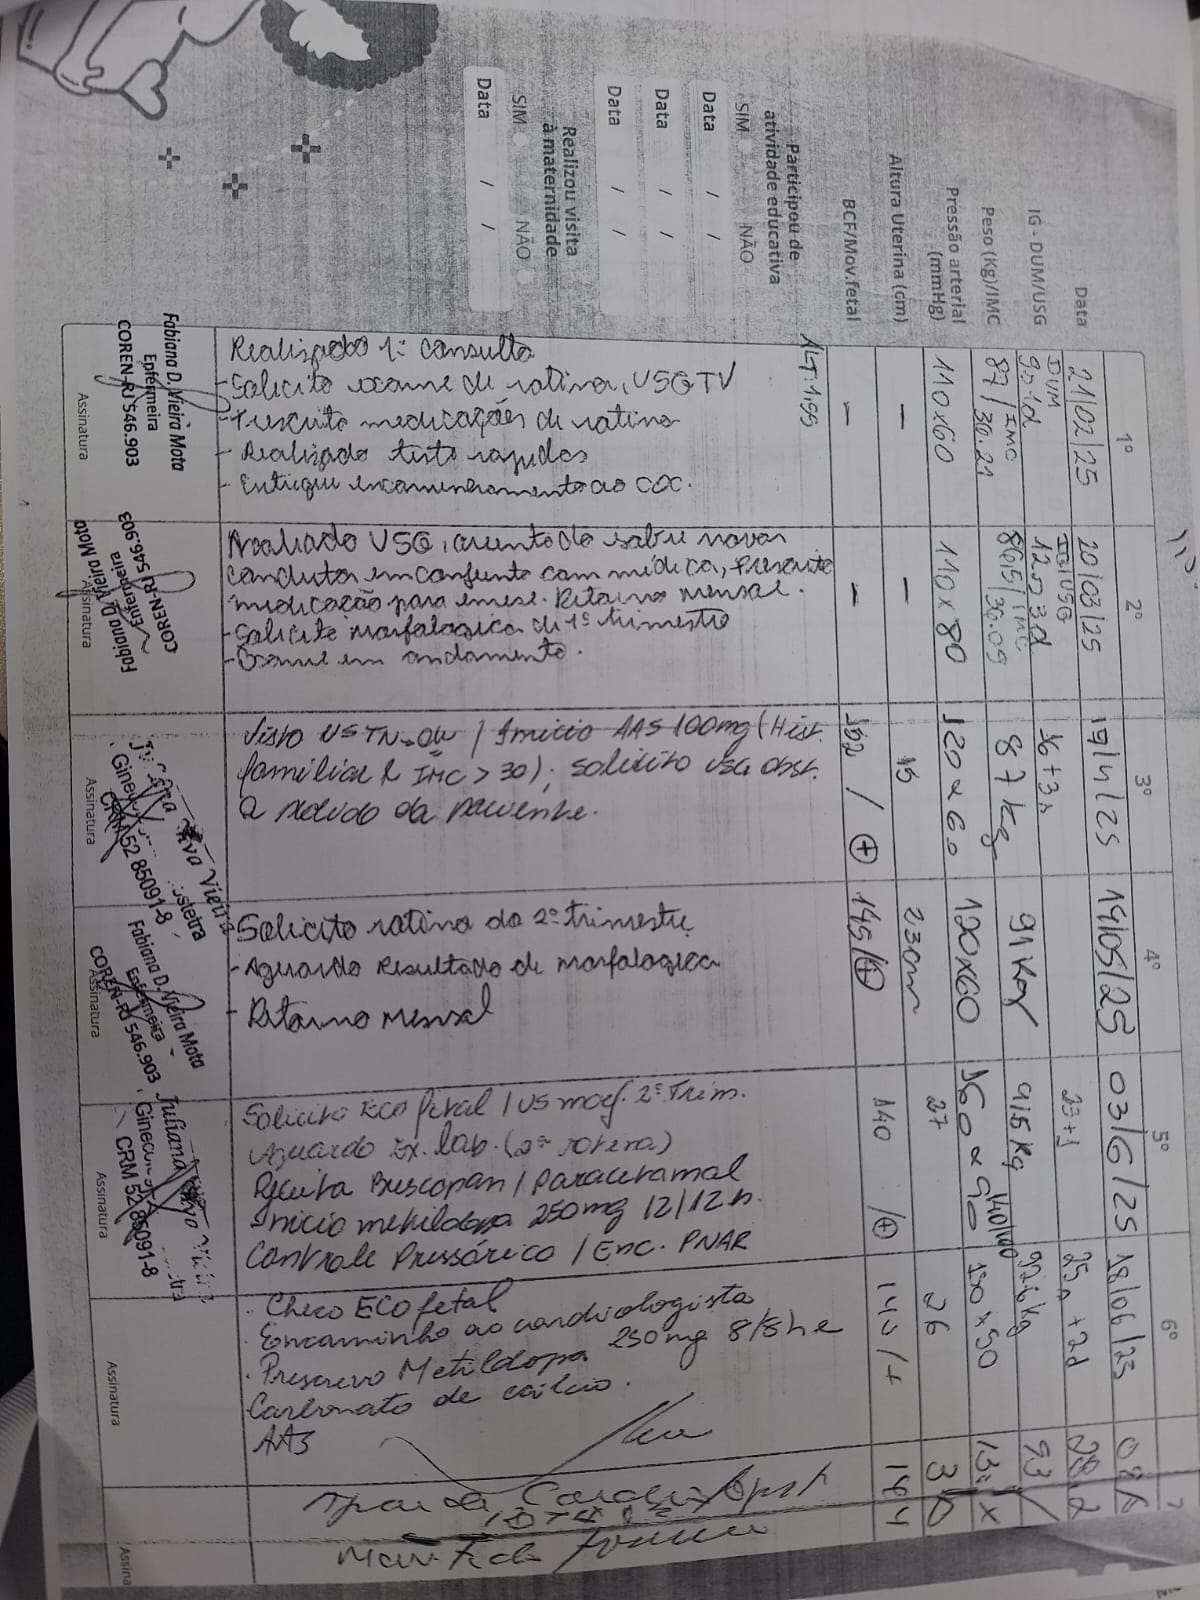 1º
2º
3º
4º
5º
6º
7
Data
21/02/25
20/03/25
19/4/25
14/05/25
03/6/25
18/06/25
IG - DUM/USG
DUM
IG/USG
12s 3d
16+3s
23+1
25s +2d
28.2
Peso (Kg)/IMC
87 / IMC 30.21
86,5/ IMC 30.09
87kg
91kg
91,5kg
92,6kg
93/
Pressão arterial
(mmHg)
110x60
110x80
120x60
120x60
160x90 140/100
150x90
Altura Uterina (cm)
-
-
15
23cm
27
26
30
BCF/Mov.fetal
-
-
152 / +
145/+
140 /+
140/+
144
Participou de
atividade educativa
SIM NÃO
Data / /
Data / /
Data / /
Realizou visita
à maternidade
SIM NÃO
Data / /
ALT: 1.99
Realizado 1ª consulta
- Solicito exame de rotina, USG TV
- Prescrito medicações de rotina
- Realizado teste rapidos
- Entregue encaminhamento ao
Fabiana D. Vieira Mota
Enfermeira
COREN-RJ 546.903
Assinatura
Avaliado USG, orientado sobre novas
condutas em conjunto com médica, Prescrito
medicação para emese. Retorno mensal.
- Solicito morfologica de 1º trimestre
- Exame em andamento.
Fabiana D. Vieira Mota
Enfermeira
COREN-RJ 546.903
Assinatura
Visto US TN-OK / Inicio AAS 100mg (Hist.
familiar & IMC >30); solicito USG obst.
a pedido da paciente.
Vieira
CRM 52 85091-8
Assinatura
Solicito rotina do 2º trimestre
- Aguardo Resultado de morfologica
- Retorno Mensal
Fabiana D. Vieira Mota
Enfermeira
COREN-RJ 546.903
Assinatura
Solicito ECO fetal / US morf. 2º Trim.
Aguardo Ex. lab. (2ª rotina)
Receita Buscopan / Paracetamol
Inicio metildopa 250mg 12/12h.
Controle Pressórico / Enc. PNAR
Juliana
CRM 52 85091-8
Assinatura
. Checo ECO fetal
. Encaminho ao cardiologista
. Prescrevo Metildopa 250mg 8/8h e
Carbonato de cálcio.
AAS
Assinatura
Assina